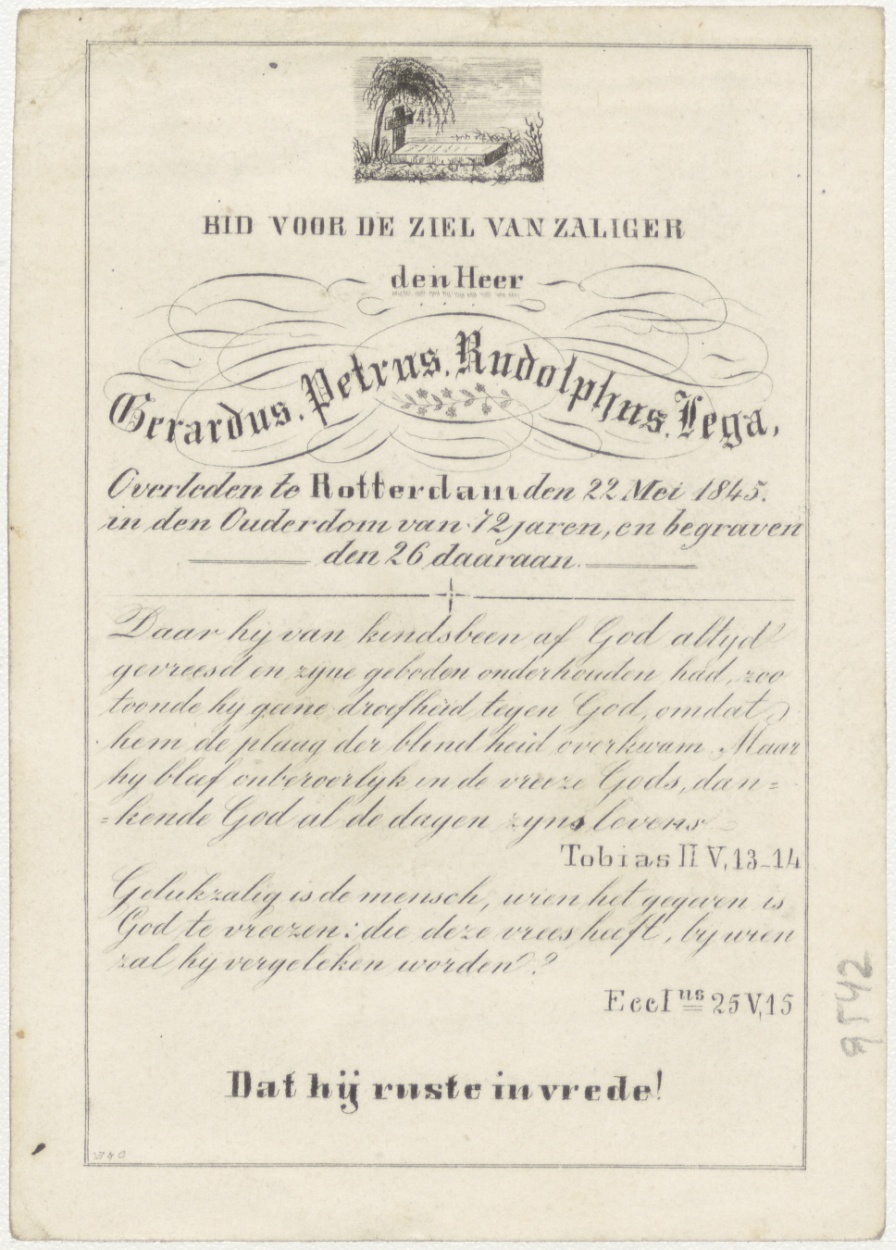 BID VOOR DE ZIEL VAN ZALIGER
den Heer
Gerardus. Petrus. Rudolphus. Lega,
Overleden te Rotterdam den 22 Mei 1845.
in den Ouderdom van 72 jaren, en begraven
den 26 daaraan.
Daar hy van kindsbeen af God altyd
gevreesd en zyne geboden onderhouden had, zoo
toonde hy geene droefheid tegen God, omdat
hem de plaag der blindheid overkwam. Maar
hy bleef onberoerlyk in de vreeze Gods, dan=
=kende God al de dagen zyns levens
Tobias II V, 13_14
Gelukzalig is de mensch, wien het gegeven is
God te vreezen: die deze vrees heeft, by wien
zal hy vergeleken worden?
Eccl us 25 V, 15
Dat hij ruste in vrede!
9542